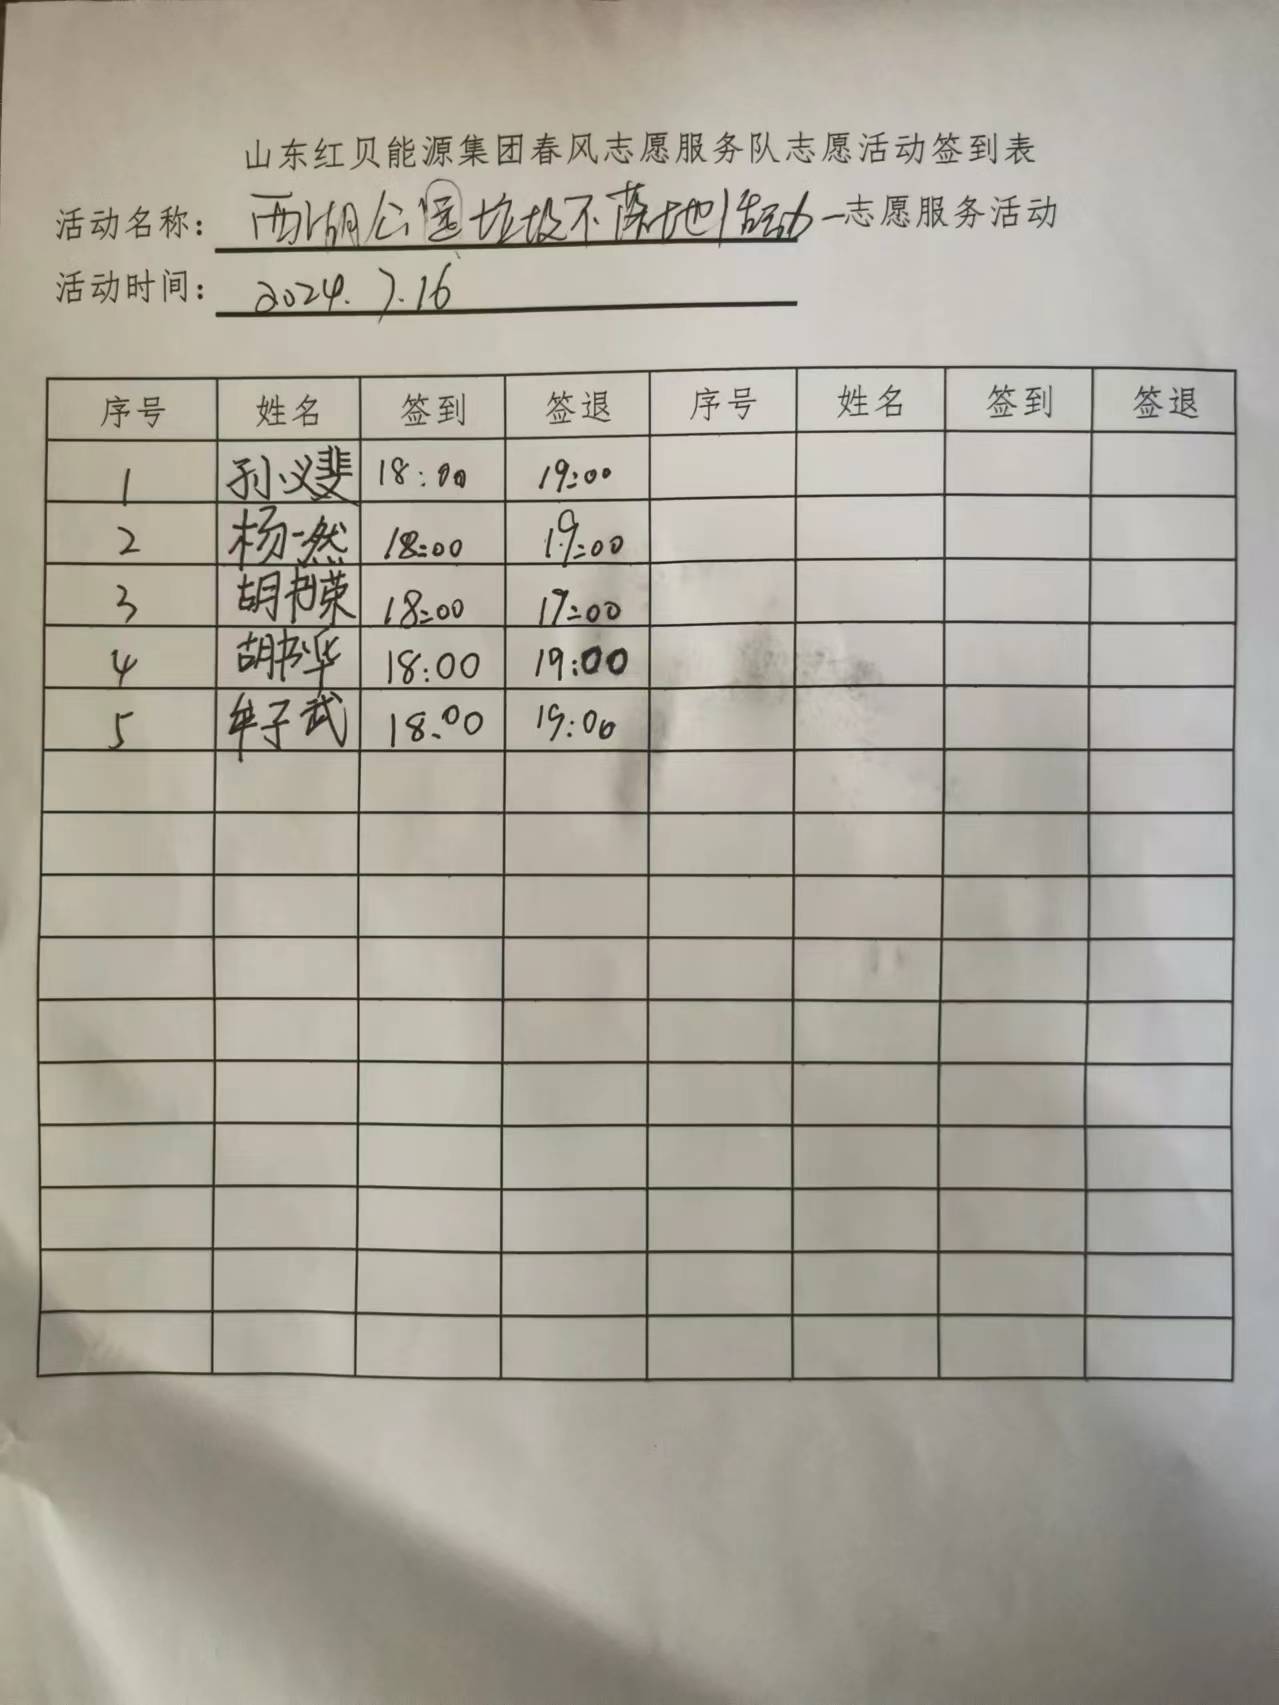 山东红贝能源集团春风志愿服务队志愿活动签到表
活动名称：西湖公园垃圾不落地活动—志愿服务活动
活动时间：2024.7.16
序号 姓名 签到 签退 序号 姓名 签到 签退
1 孙义斐 18:00 19:00
2 杨一然 18:00 19:00
3 胡书荣 18:00 19:00
4 胡书华 18:00 19:00
5 牟子武 18:00 19:00